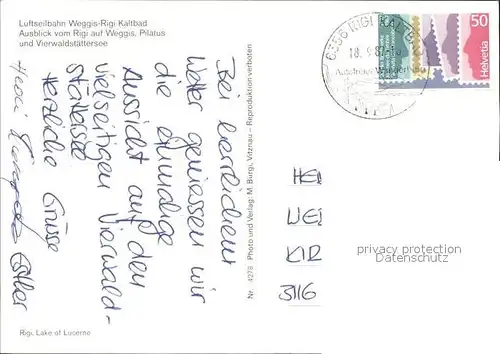 Luftseilbahn Weggis-Rigi Kaltbad
Ausblick vom Rigi auf Weggis, Pilatus
und Vierwaldstättersee
Bei herrlichem
Wetter geniessen wir
die einmalige
Aussicht auf den
vielseitigen Vierwald-
stättersee
Herzliche Grüsse
Esther
Heidi
Rigi, Lake of Lucerne
Nr. 4278 Photo und Verlag: M. Bürgi, Vitznau – Reproduktion verboten
6356 RIGI KALTBAD
18.
Autofreies
50
Helvetia
HEI
WEI
KIR
3116
privacy protection
Datenschutz